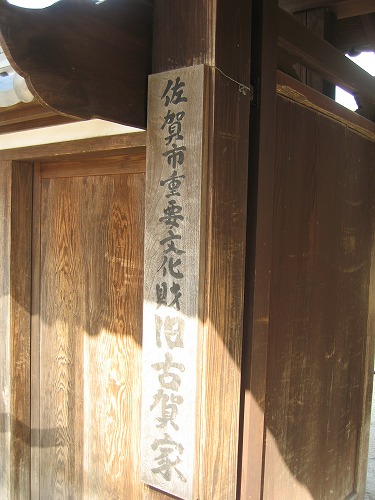 佐賀市重要文化財旧古賀家